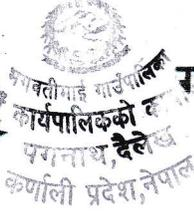 भगवतीमाई गाउँपालिका
कार्यपालिकको
पगनाथ, दैलेख
कर्णाली प्रदेश, नेपाल